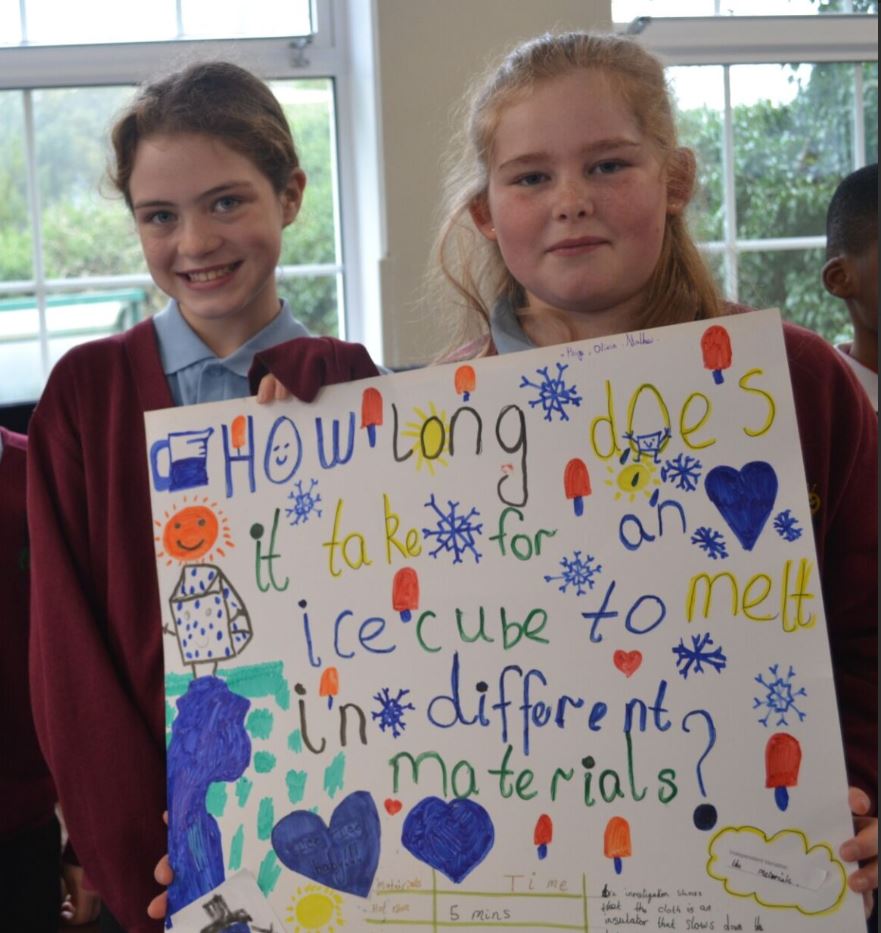 Paige, Olivia, Nathan
HOW long does
it take for an
ice cube to melt
in different
materials?
Independent Variable:
the materials.
Materials Time
5 mins
investigation shows
that the cloth is an
insulator that slows down the